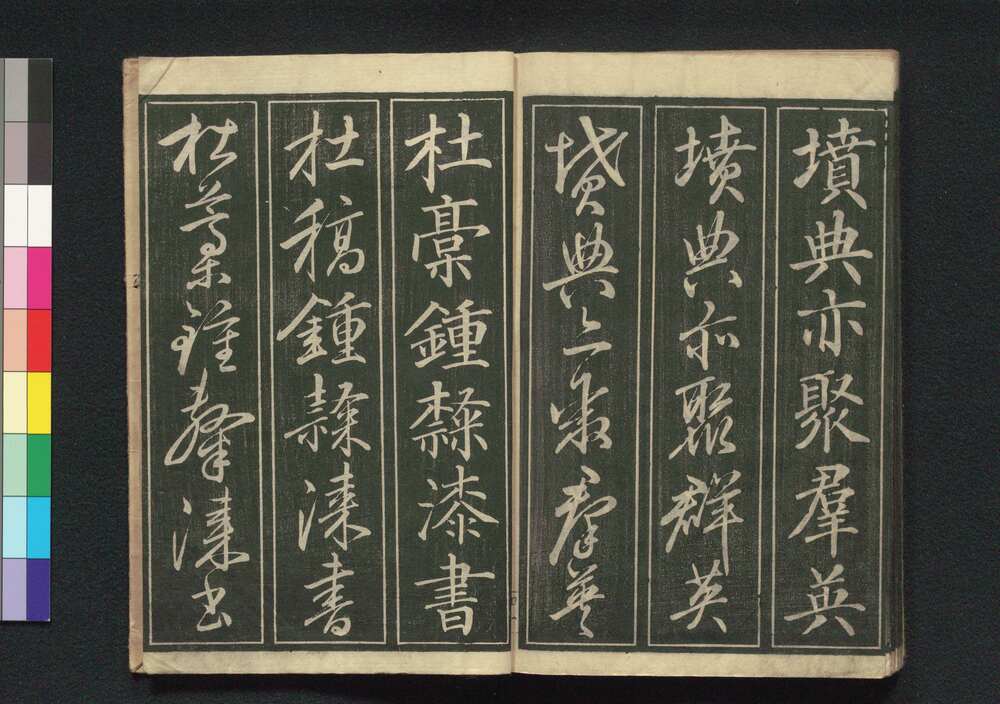 墳典亦聚羣英
墳典亦聚群英
墳典亦聚群英
杜稾鍾隸漆書
杜稿鍾隸漆書
杜稾鍾隸漆書